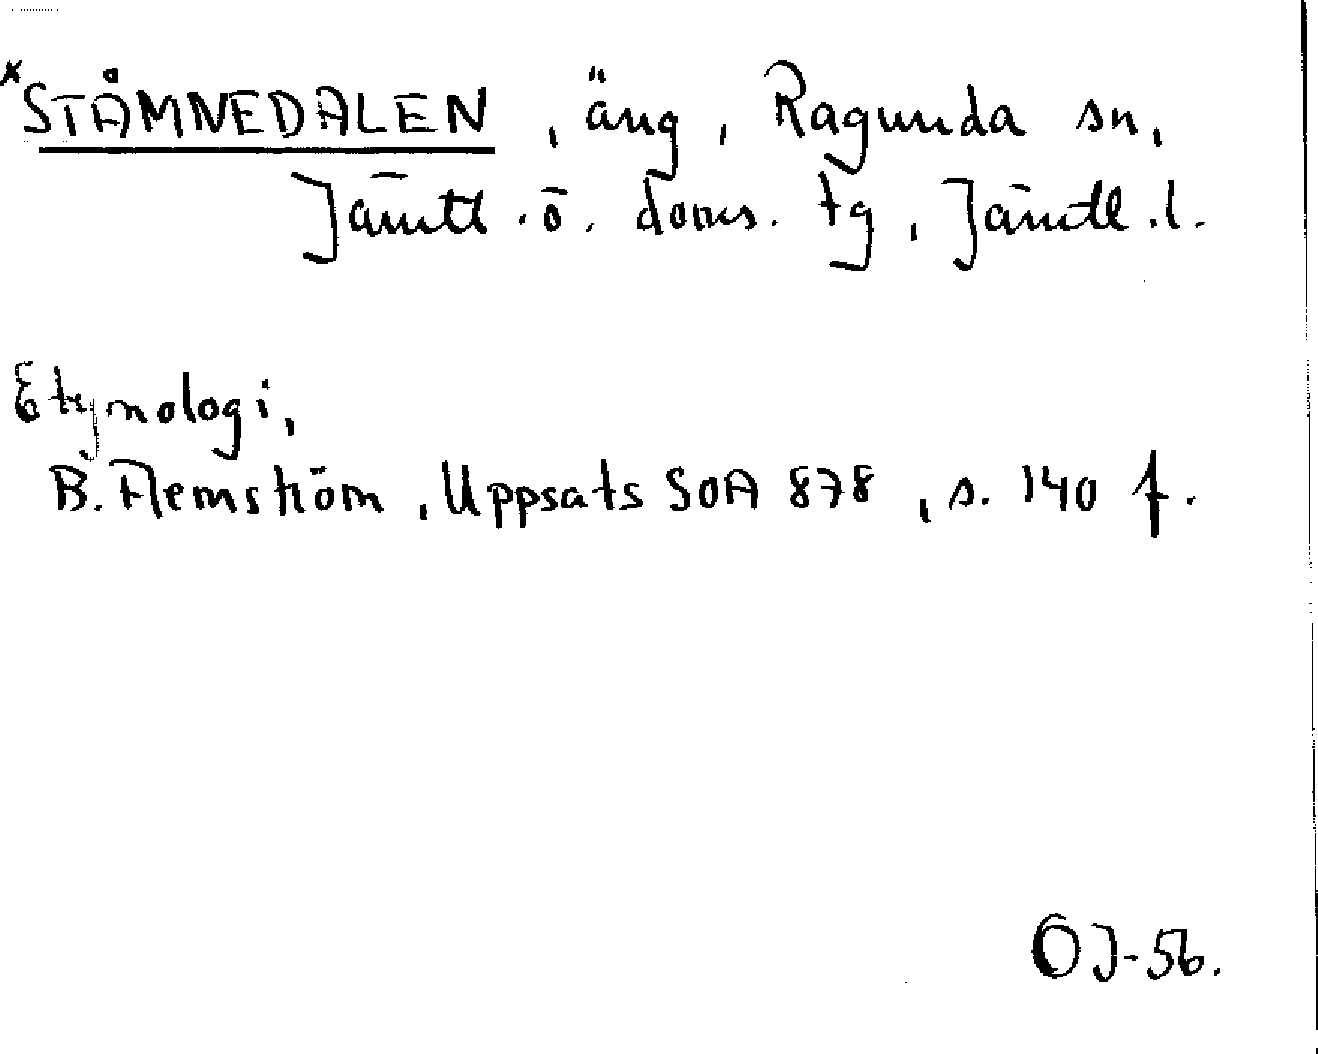 *STÅMNEDALEN, äng, Ragunda sn,
Jämtl. ö. doms. tg, Jämtl. l.
Etymologi,
B. Flemström, Uppsats SOA 878, s. 140 f.
OJ-56.